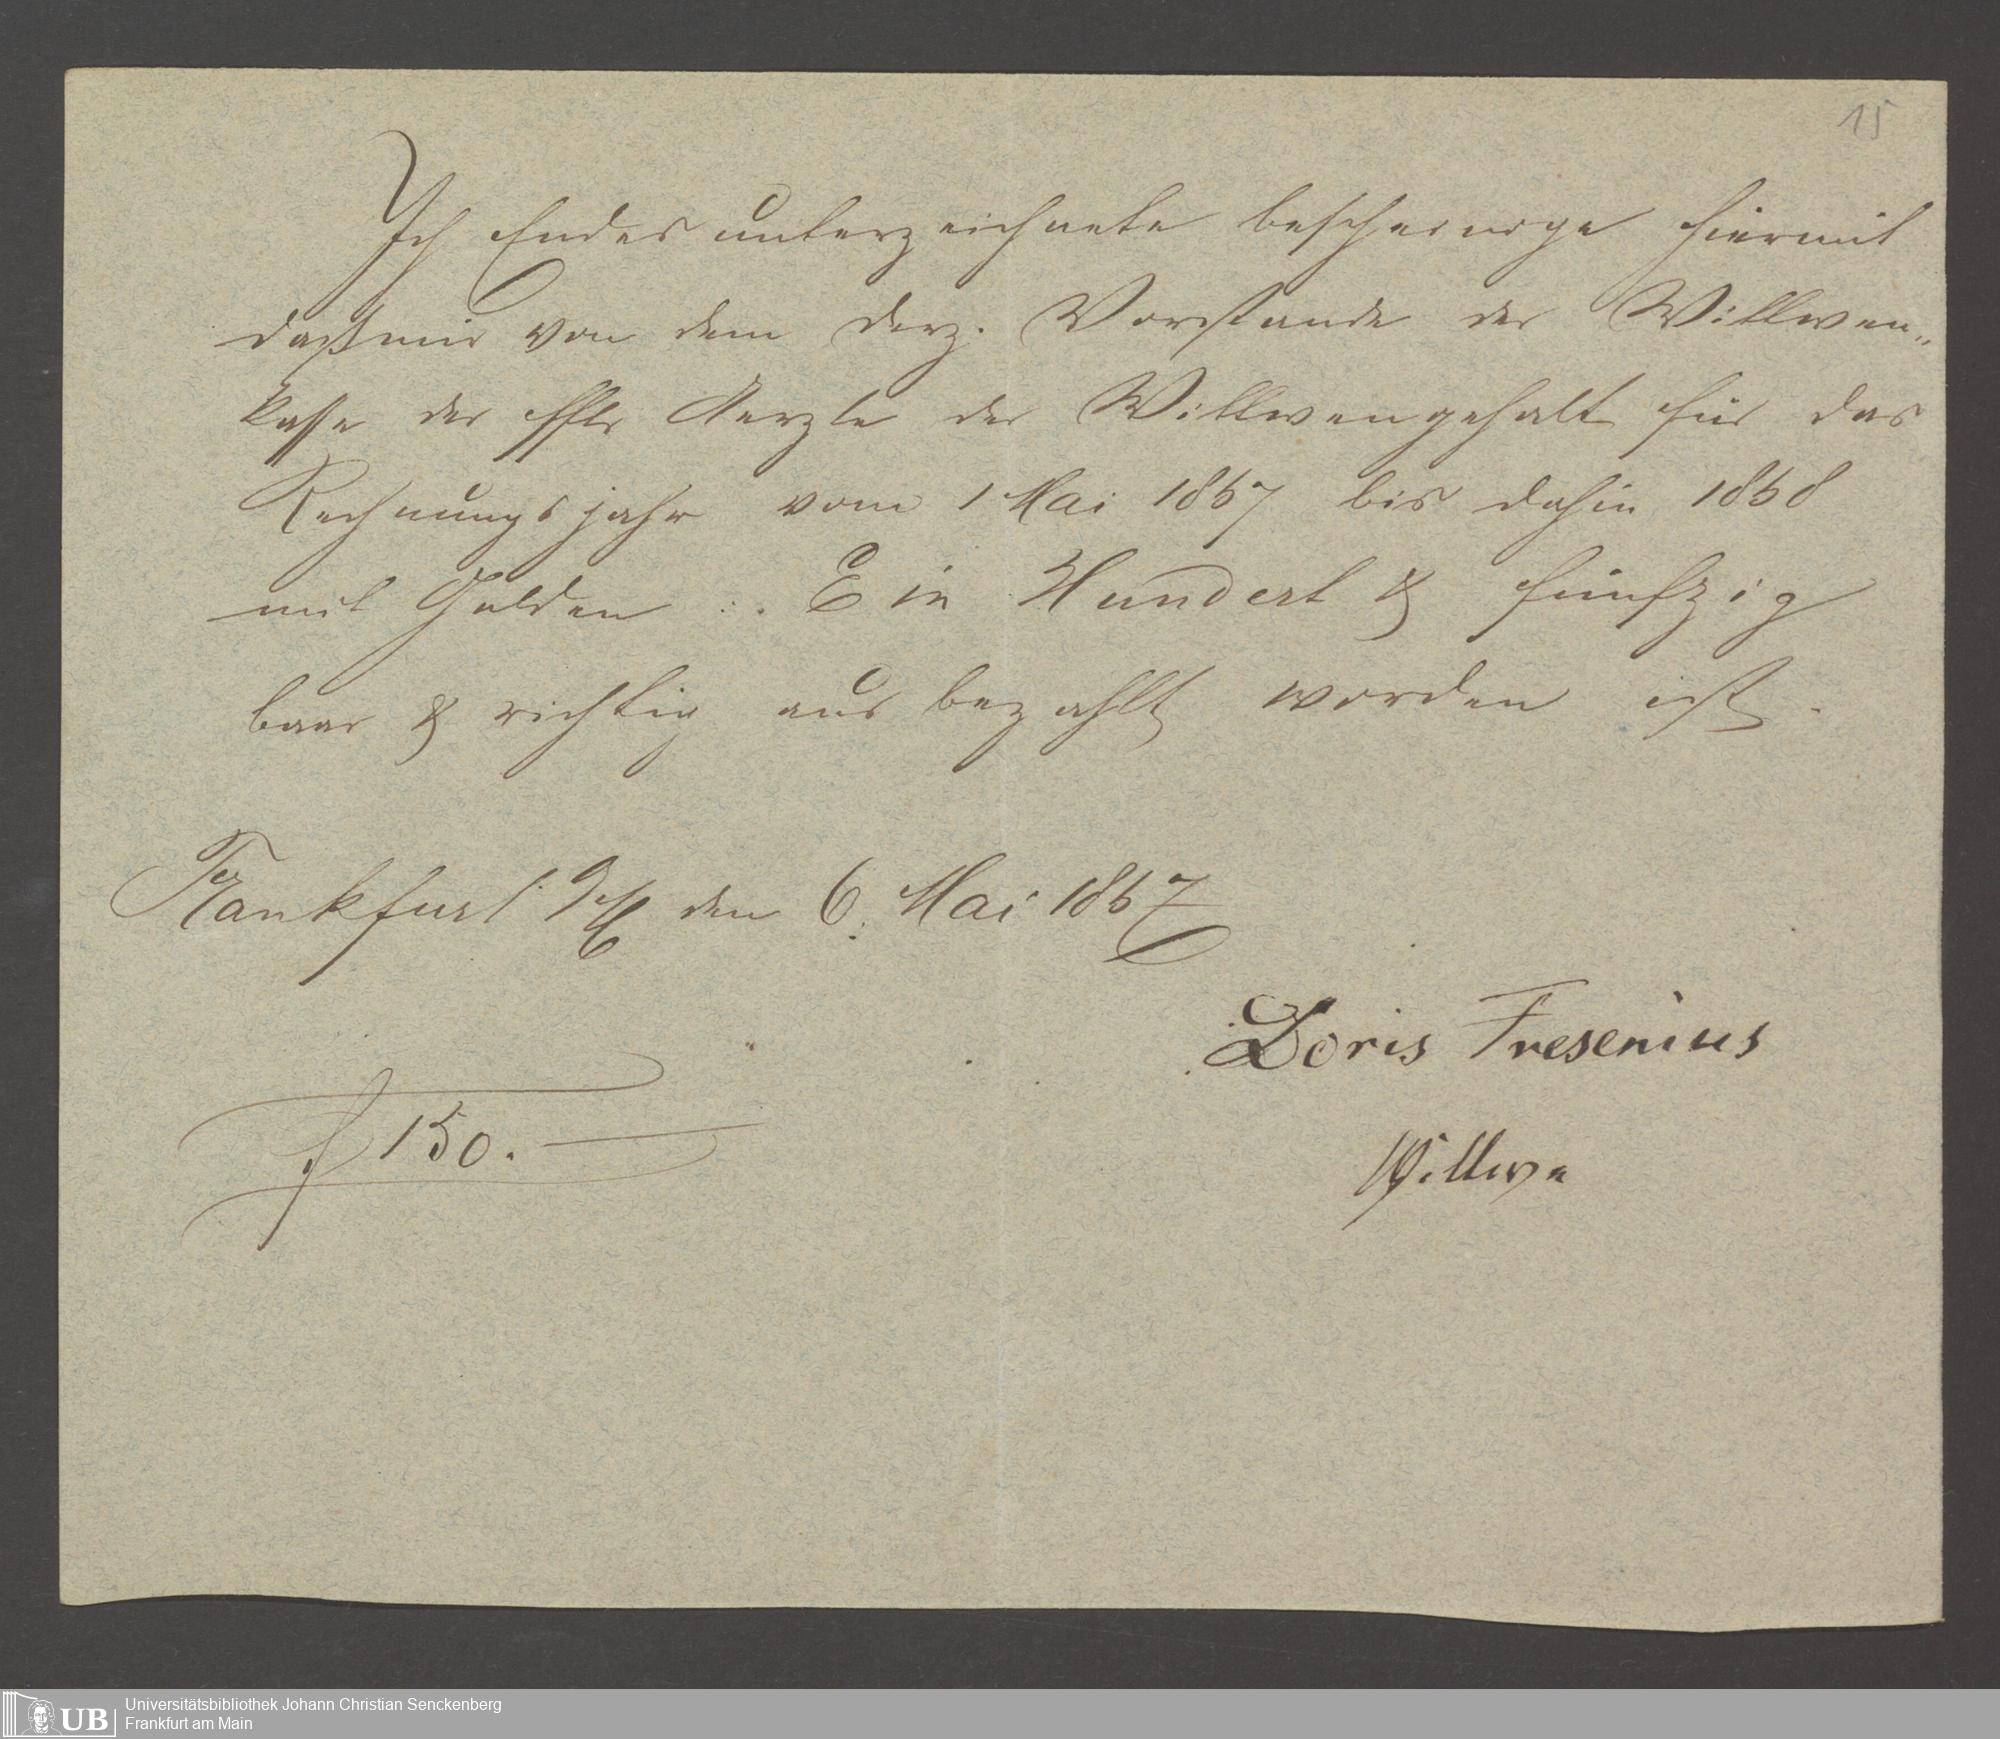 15
Ich Endesunterzeichnete bescheinige hiermit
daß mir von dem derz. Vorstande der Wittwen„
kasse der Aerzte der Wittwengehalt für das
Rechnungsjahr vom 1 Mai 1867 bis dahin 1868
mit Gulden :. Ein Hundert & fünfzig
baar & richtig ausbezahlt worden ist.
Frankfurt a/M den 6. Mai 1867
Doris Fresenius
f 150.—
Wittwe
UB
Universitätsbibliothek Johann Christian Senckenberg
Frankfurt am Main